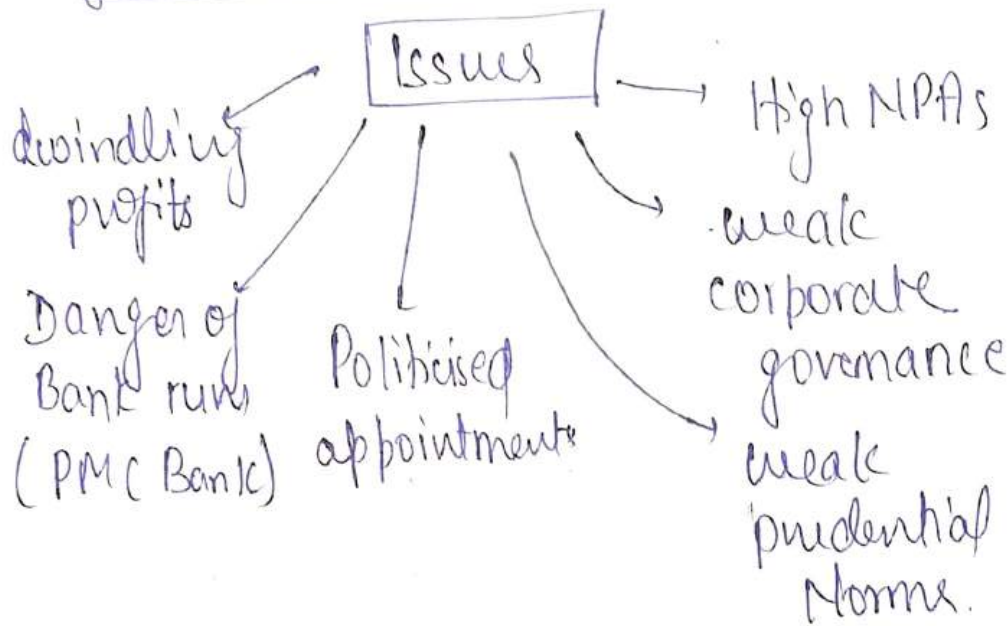 Issues
dwindling
profits
Danger of
Bank runs
(PMC Bank)
Politicised
appointments
High NPAs
weak
corporate
governance
weak
prudential
Norms.